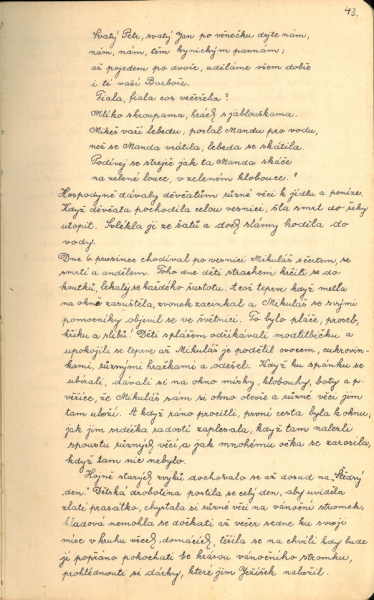 43.
Svatý Petr, svatý Jan po věnečku dejte nám,
nám, nám, těm kynickým pannám;
až pojedem po dvoře, uděláme všem dobře
i té vaší Barboře.
Fiala, fiala cos večeřela?
Mlíko skroupama, hrách s jablouskama.
Mikeš vaří lebedu, poslal Mandu pro vodu,
než se Manda vrátila, lebeda se skátila.
Podívej se strejče jak ta Manda skáče
na zelené louce, v zeleném klobouce."
Hospodyně dávaly děvčatům různé věci k jídlu a peníze.
Když děvčata pochodila celou vesnici, šla smrt do řeky
utopit. Svlékla ji ze šatů a došky slámy hodila do
vody.
Dne 6. prosince chodíval po vesnici Mikuláš s čertem, se
smrtí a andělem. Toho dne děti strachem krčili se do
koutků, lekaly se každého šustotu. A což teprve když metla
na okně zarustěla, zvonek zacinkal a Mikuláš se svými
pomocníky objevil se ve světnici. To bylo pláče, proseb,
křiku a slibů! Děti s pláčem odříkávali modlitbičku a
upokojili se teprve až Mikuláš je podělil ovocem, cukrovin-
kami, různými hračkami a odešel. Když ku spánku se
ubírali, dávali si na okno misky, klobouky, boty a v
věříce, že Mikuláš sám si okno otevře a různé věci jim
tam uloží. A když ráno procitli, první cesta byla k oknu,
jak jim srdéčka radostí zaplesala, když tam nalezli
spoustu různých věcí a jak mnohému očka se zarosila,
když tam nic nebylo.
Hojně starých zvyků dochovalo se až dosud na „Štědrý
den." Dětská drobotina postila se celý den, aby uviděla
zlaté prasátko, chystala si různé věci na vánoční stromek,
hladová nemohla se dočkati až večer sedne ku svojí
misce v kruhu všech domácích, těšila se na chvíli kdy bude
jí popřáno pokochati se krásou vánočního stromku,
prohlédnouti si dárky, které jim Ježíšek naložil.